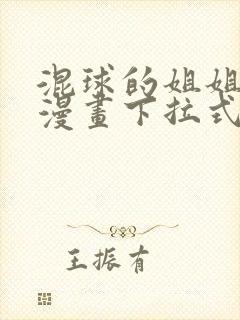 混球的姐姐
漫畫下拉式
王振有